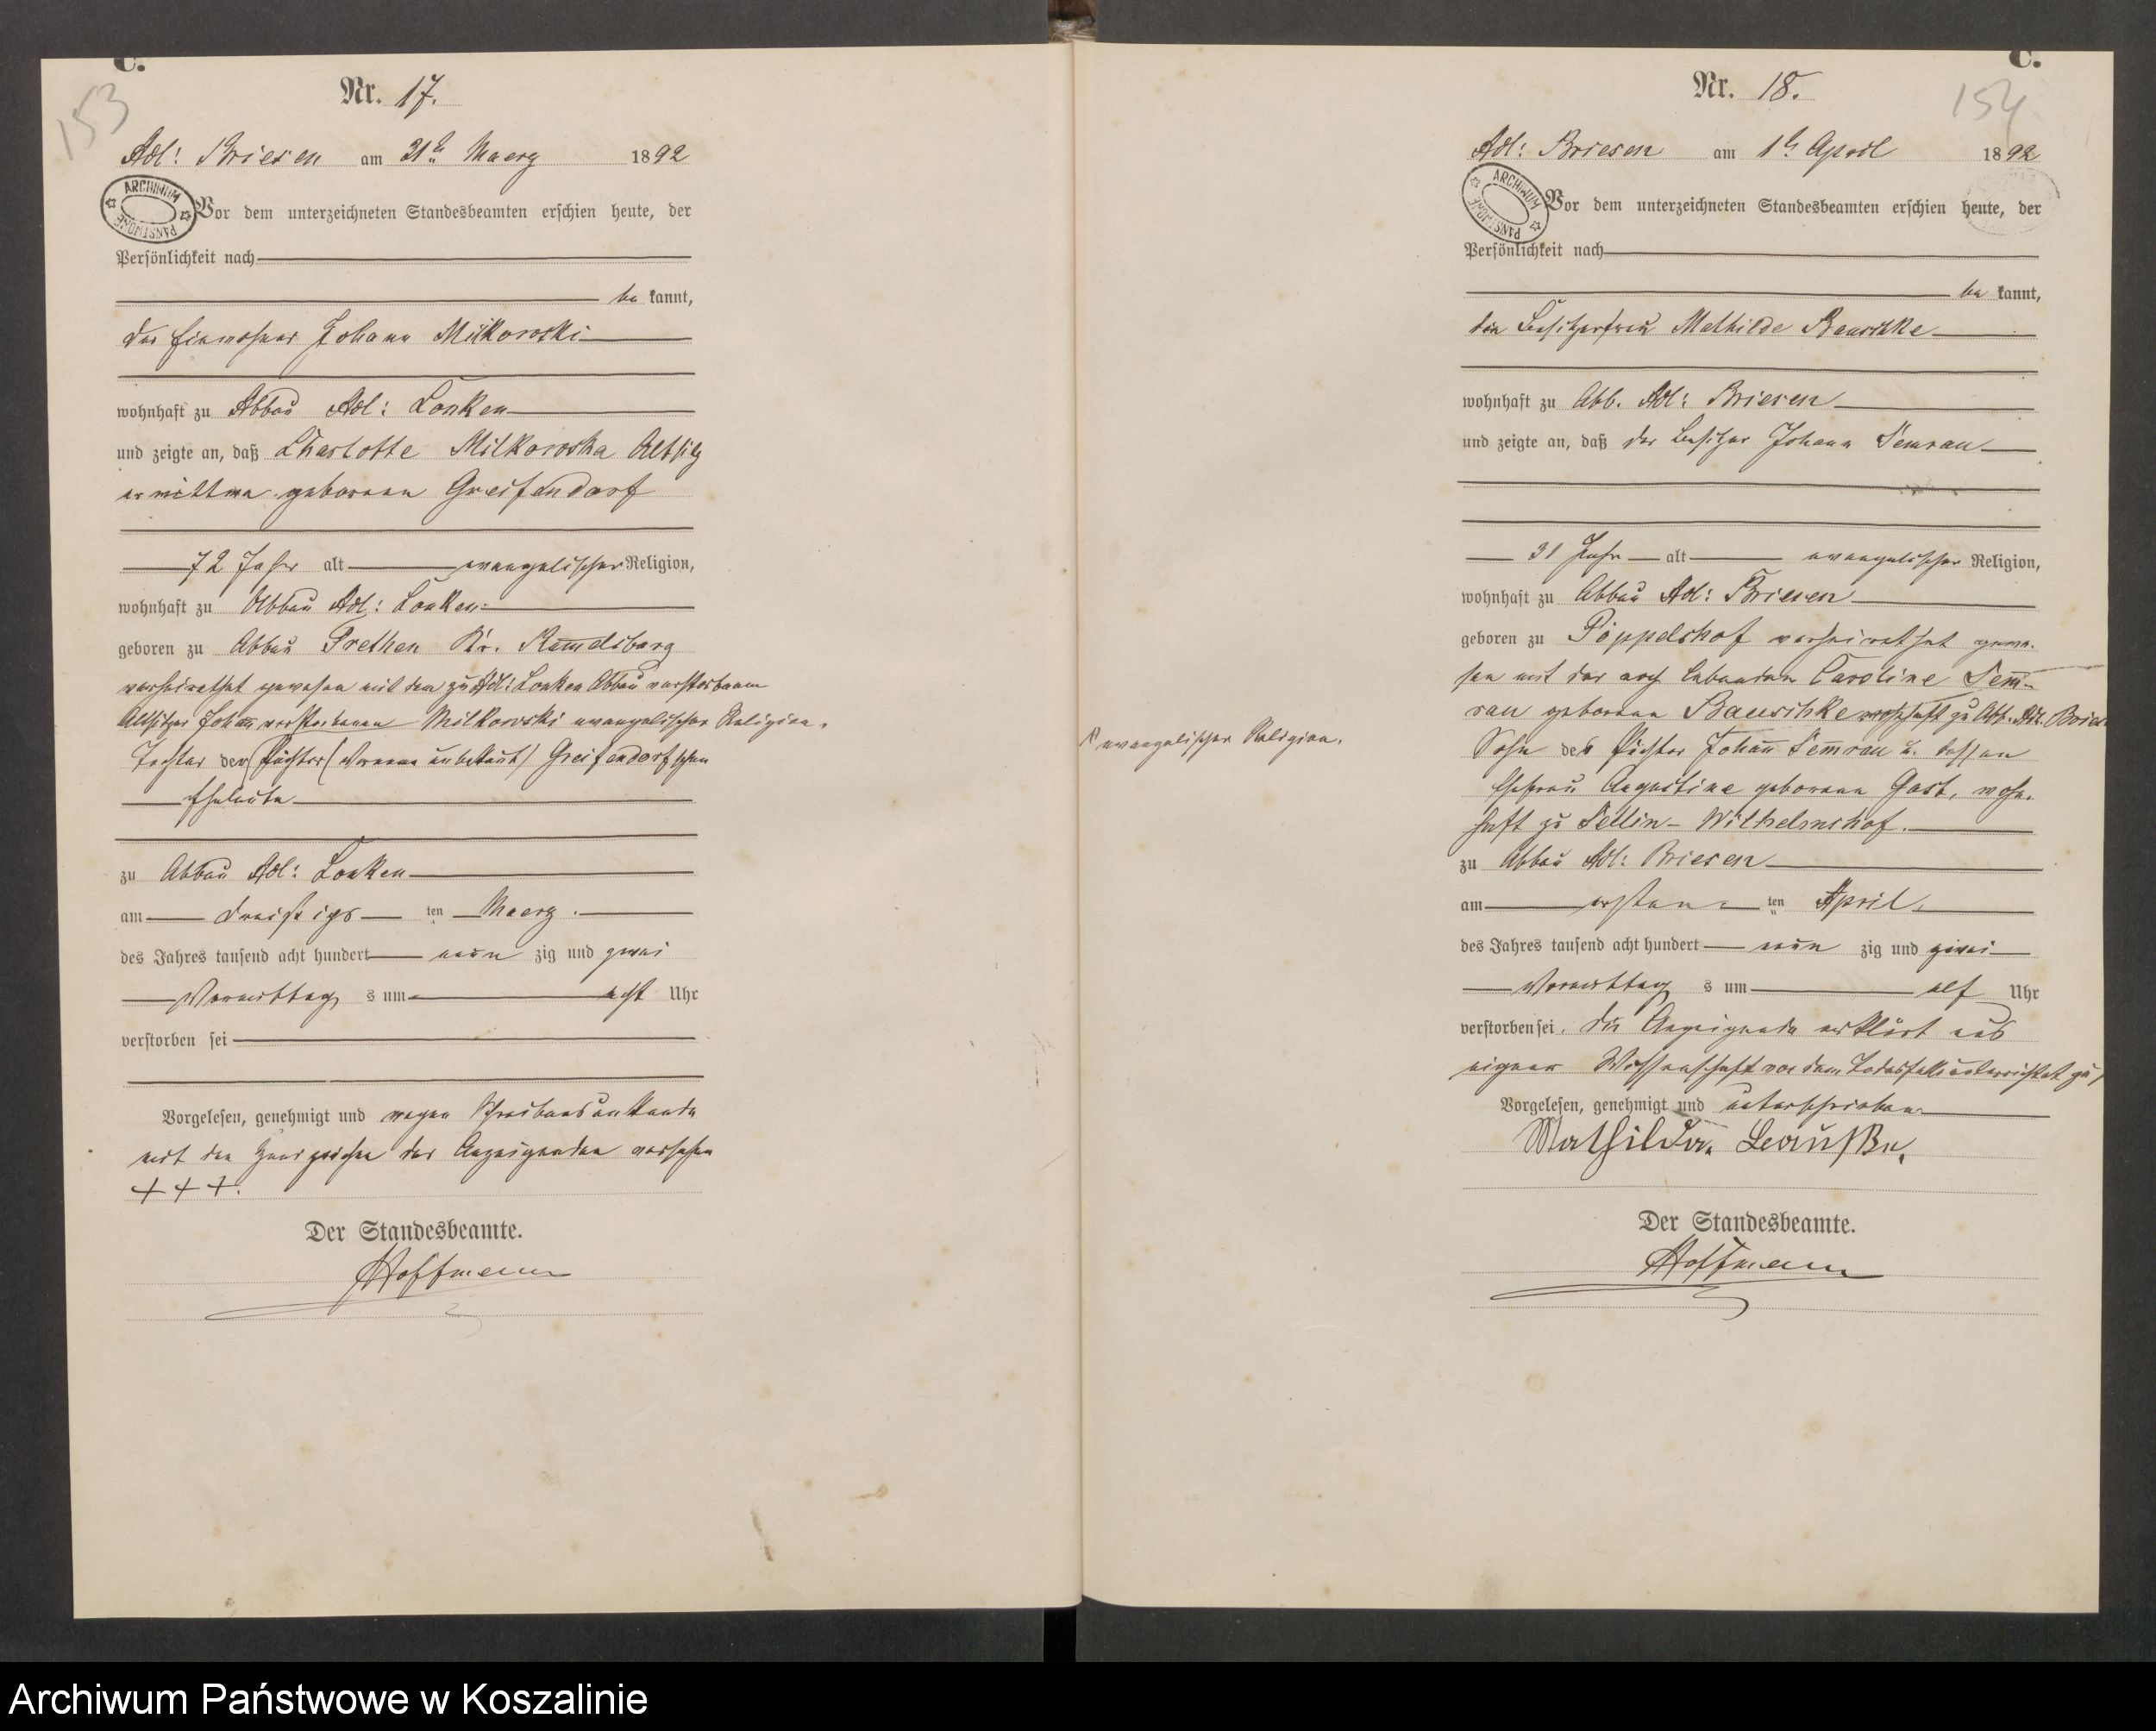 C.
153
Nr. 17.
Adl: Briesen am 31t Maerz 1892
ARCHIWUM PAŃSTWOWE
Vor dem unterzeichneten Standesbeamten erschien heute, der
Persönlichkeit nach
be kannt,
der Einwohner Johann Milkowski
wohnhaft zu Abbau Adl: Lonken
und zeigte an, daß Charlotte Milkowska Altsitz
erwittwe geborene Greifendorf
72 Jahr alt evangelischer Religion,
wohnhaft zu Abbau Adl: Lonken
geboren zu Abbau Prethen Kr. Rum̄elsburg
verheirathet gewesen mit dem zu Adl: Lonken Abbau verstorbenen
Altsitzer Johann verstorbenen Milkowski evangelischer Religion.
Tochter der Pächter (Vorname unbekannt) Greifendorfschen
Eheleute
zu Abbau Adl: Lonken
am dreißigs ten Maerz.
des Jahres tausend acht hundert neun zig und zwei
Vormittag s um acht Uhr
verstorben sei
Vorgelesen, genehmigt und wegen Schreibensunkunde
mit den Handzeichen des Anzeigenden versehen
+++.
Der Standesbeamte.
Hoffmann
C.
154
Nr. 18.
Adl: Briesen am 1t April 1892
ARCHIWUM PAŃSTWOWE
Vor dem unterzeichneten Standesbeamten erschien heute, der
Persönlichkeit nach
be kannt,
die Besitzerfrau Mathilde Bauschke
wohnhaft zu Abb. Adl: Briesen
und zeigte an, daß der Besitzer Johann Semrau
31 Jahr alt evangelischer Religion,
wohnhaft zu Abbau Adl: Briesen
geboren zu Pöppelshof verheirathet gewe-
sen mit der noch lebenden Caroline Sem̄-
rau geborene Bauschke wohnhaft zu Abb. Adl. Briesen
evangelischer Religion.
Sohn des Pächter Johan̄ Sem̄rau u. dessen
Ehefrau Augustine geborene Gast, wohn-
haft zu Sellin-Wilhelmshof.
zu Abbau Adl: Briesen
am ersten ten April
des Jahres tausend acht hundert neun zig und zwei
Vormittag s um elf Uhr
verstorben sei. Die Anzeigende erklärt aus
eigner Wissenschaft von dem Todesfall unterrichtet zu
Vorgelesen, genehmigt und unterschrieben
Mathilde Bauschke
Der Standesbeamte.
Hoffmann
Archiwum Państwowe w Koszalinie